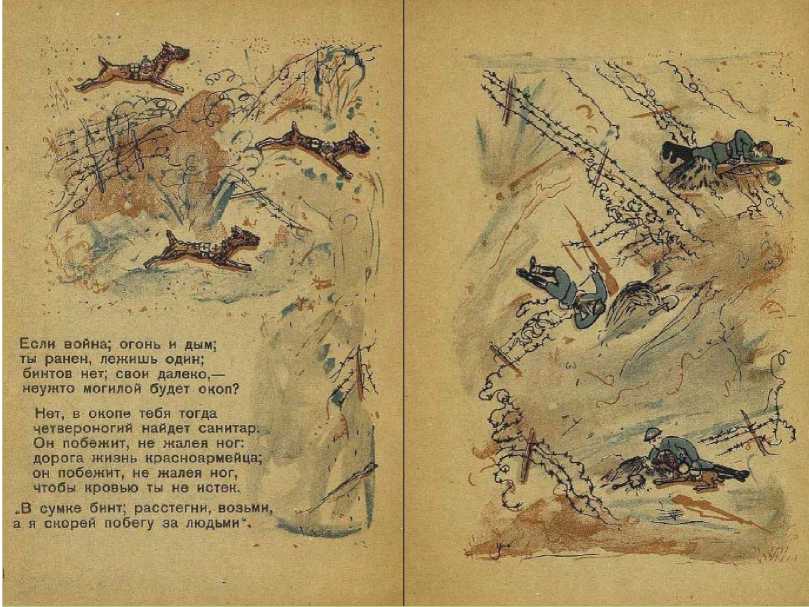 Если война; огонь и дым;
ты ранен, лежишь один;
бинтов нет; свои далеко,—
неужто могилой будет окоп?
Нет, в окопе тебя тогда
четвероногий найдет санитар.
Он побежит, не жалея ног:
дорога жизнь красноармейца;
он побежит, не жалея ног,
чтобы кровью ты не истек.
„В сумке бинт; расстегни, возьми,
а я скорей побегу за людьми“.